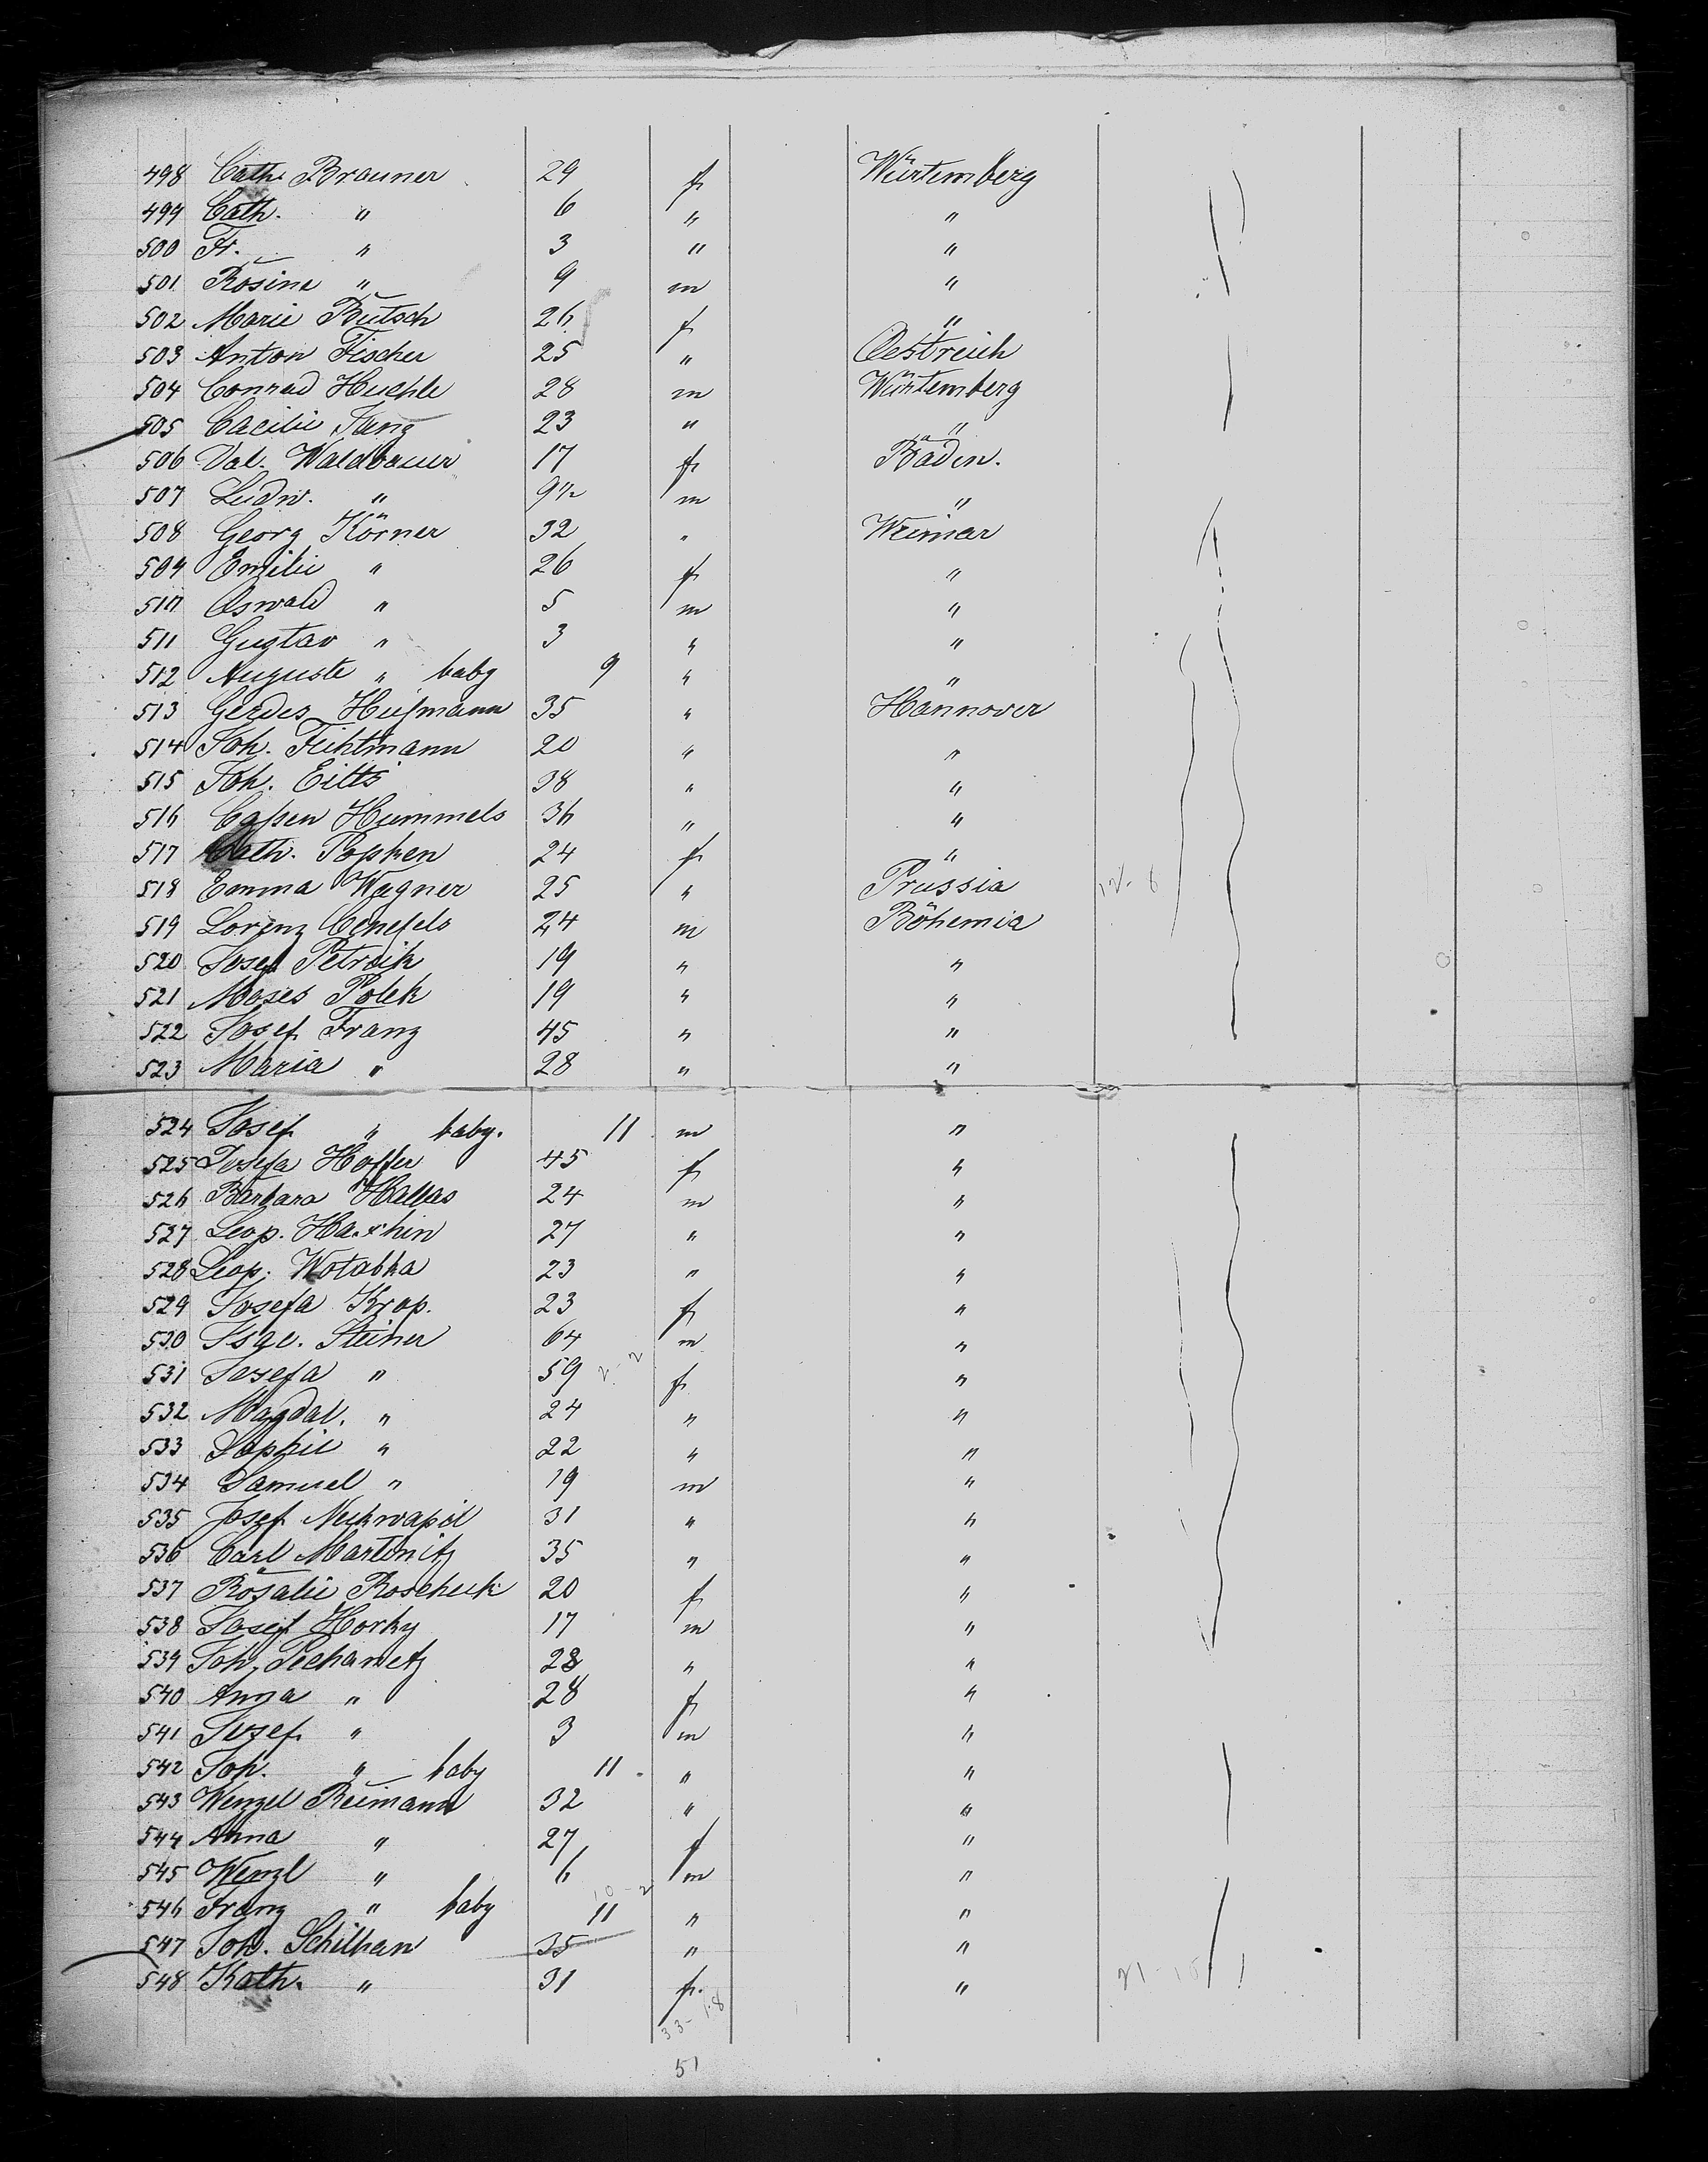 498 Cath. Brauner 29 f Würtemberg
499 Cath. " 6 " "
500 Fr. " 3 " "
501 Rosina " 9 m "
502 Marie Butsch 26 f "
503 Anton Fischer 25 " Oestreich
504 Conrad Huchle 28 m Würtemberg
505 Cacilie Jung 23 " "
506 Val. Waldbauer 17 f Baden.
507 Ludw. " 9 1/2 m "
508 Georg Körner 32 " Weimar
509 Emilie " 26 f "
510 Oswald " 5 m "
511 Gustav " 3 " "
512 Auguste " baby 9 " "
513 Gerdes 35 " Hannover
514 Joh. Fichtmann 20 " "
515 Joh. Eilts 38 " "
516 Hummels 36 " "
517 Cath. Popken 24 f "
518 Emma Wagner 25 " Prussia 12-8
519 Lorenz 24 m Böhemia
520 Josef Petrzik 19 " "
521 Moses Polek 19 " "
522 Josef Franz 45 " "
523 Maria " 28 " "
524 Josef " baby. 11 m "
525 Josefa Hoffer 45 f "
526 Barbara Hallas 24 m "
527 Leop. 27 " "
528 Leop. Wotabka 23 " "
529 Josefa Krop. 23 f "
530 Steiner 64 m "
531 Josefa " 59 2-2 f "
532 Magdal. " 24 " "
533 Sophie " 22 " "
534 Samuel " 19 m "
535 Josef Nekwapil 31 " "
536 Carl Martinitz 35 " "
537 Rosalie Roscheck 20 f "
538 Josef Horky 17 m "
539 Joh. Pechanetz 28 " "
540 Anna " 28 f "
541 Josef " 3 m "
542 Joh. " baby 11 " "
543 Wenzel Reimann 32 " "
544 Anna " 27 f "
545 Wenzl " 6 m "
546 Franz " baby 10-2 11 " "
547 Joh. Schilhan 35 " "
548 Kath. " 31 f. " 21-15
33-18
51